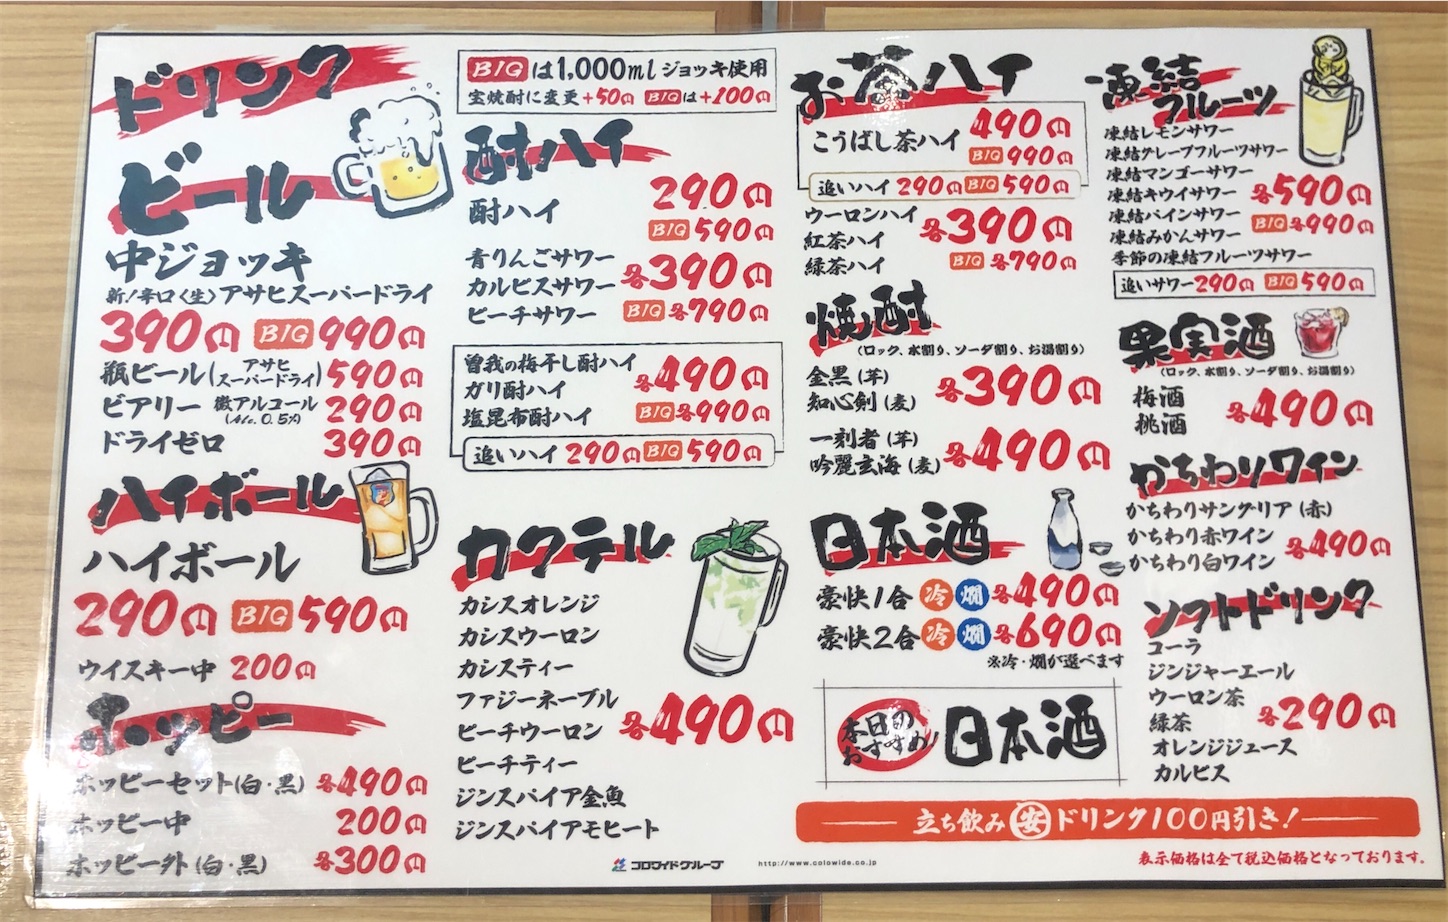 ドリンク
ビール
中ジョッキ
新!辛口〈生〉アサヒスーパードライ
390円 BIG 990円
瓶ビール(アサヒスーパードライ) 590円
ビアリー 微アルコール(Alc. 0.5%) 290円
ドライゼロ 390円
ハイボール
ハイボール
290円 BIG 590円
ウイスキー中 200円
ホッピー
ホッピーセット(白・黒) 各490円
ホッピー中 200円
ホッピー外(白・黒) 各300円
BIGは1,000mlジョッキ使用
宝焼酎に変更+50円 BIGは+100円
酎ハイ
酎ハイ 290円
BIG 590円
青りんごサワー
カルピスサワー 各390円
ピーチサワー BIG 各790円
曽我の梅干し酎ハイ
ガリ酎ハイ 各490円
塩昆布酎ハイ BIG 各990円
追いハイ 290円 BIG 590円
カクテル
カシスオレンジ
カシスウーロン
カシスティー
ファジーネーブル
ピーチウーロン 各490円
ピーチティー
ジンスパイア金魚
ジンスパイアモヒート
コロワイドグループ http://www.colowide.co.jp
お茶ハイ
こうばし茶ハイ 490円
BIG 990円
追いハイ 290円 BIG 590円
ウーロンハイ 各390円
紅茶ハイ
緑茶ハイ BIG 各790円
焼酎
(ロック、水割り、ソーダ割り、お湯割り)
金黒(芋) 各390円
知心剣(麦)
一刻者(芋) 各490円
吟麗玄海(麦)
日本酒
豪快1合 冷 燗 各490円
豪快2合 冷 燗 各690円
※冷・燗が選べます
本日のおすすめ! 日本酒
凍結フルーツ
凍結レモンサワー
凍結グレープフルーツサワー
凍結マンゴーサワー
凍結キウイサワー 各590円
凍結パインサワー BIG 各990円
凍結みかんサワー
季節の凍結フルーツサワー
追いサワー290円 BIG 590円
果実酒
(ロック、水割り、ソーダ割り、お湯割り)
梅酒 各490円
桃酒
かちわりワイン
かちわりサングリア(赤)
かちわり赤ワイン 各490円
かちわり白ワイン
ソフトドリンク
コーラ
ジンジャーエール
ウーロン茶 各290円
緑茶
オレンジジュース
カルピス
立ち飲み 安 ドリンク100円引き!
表示価格は全て税込価格となっております。